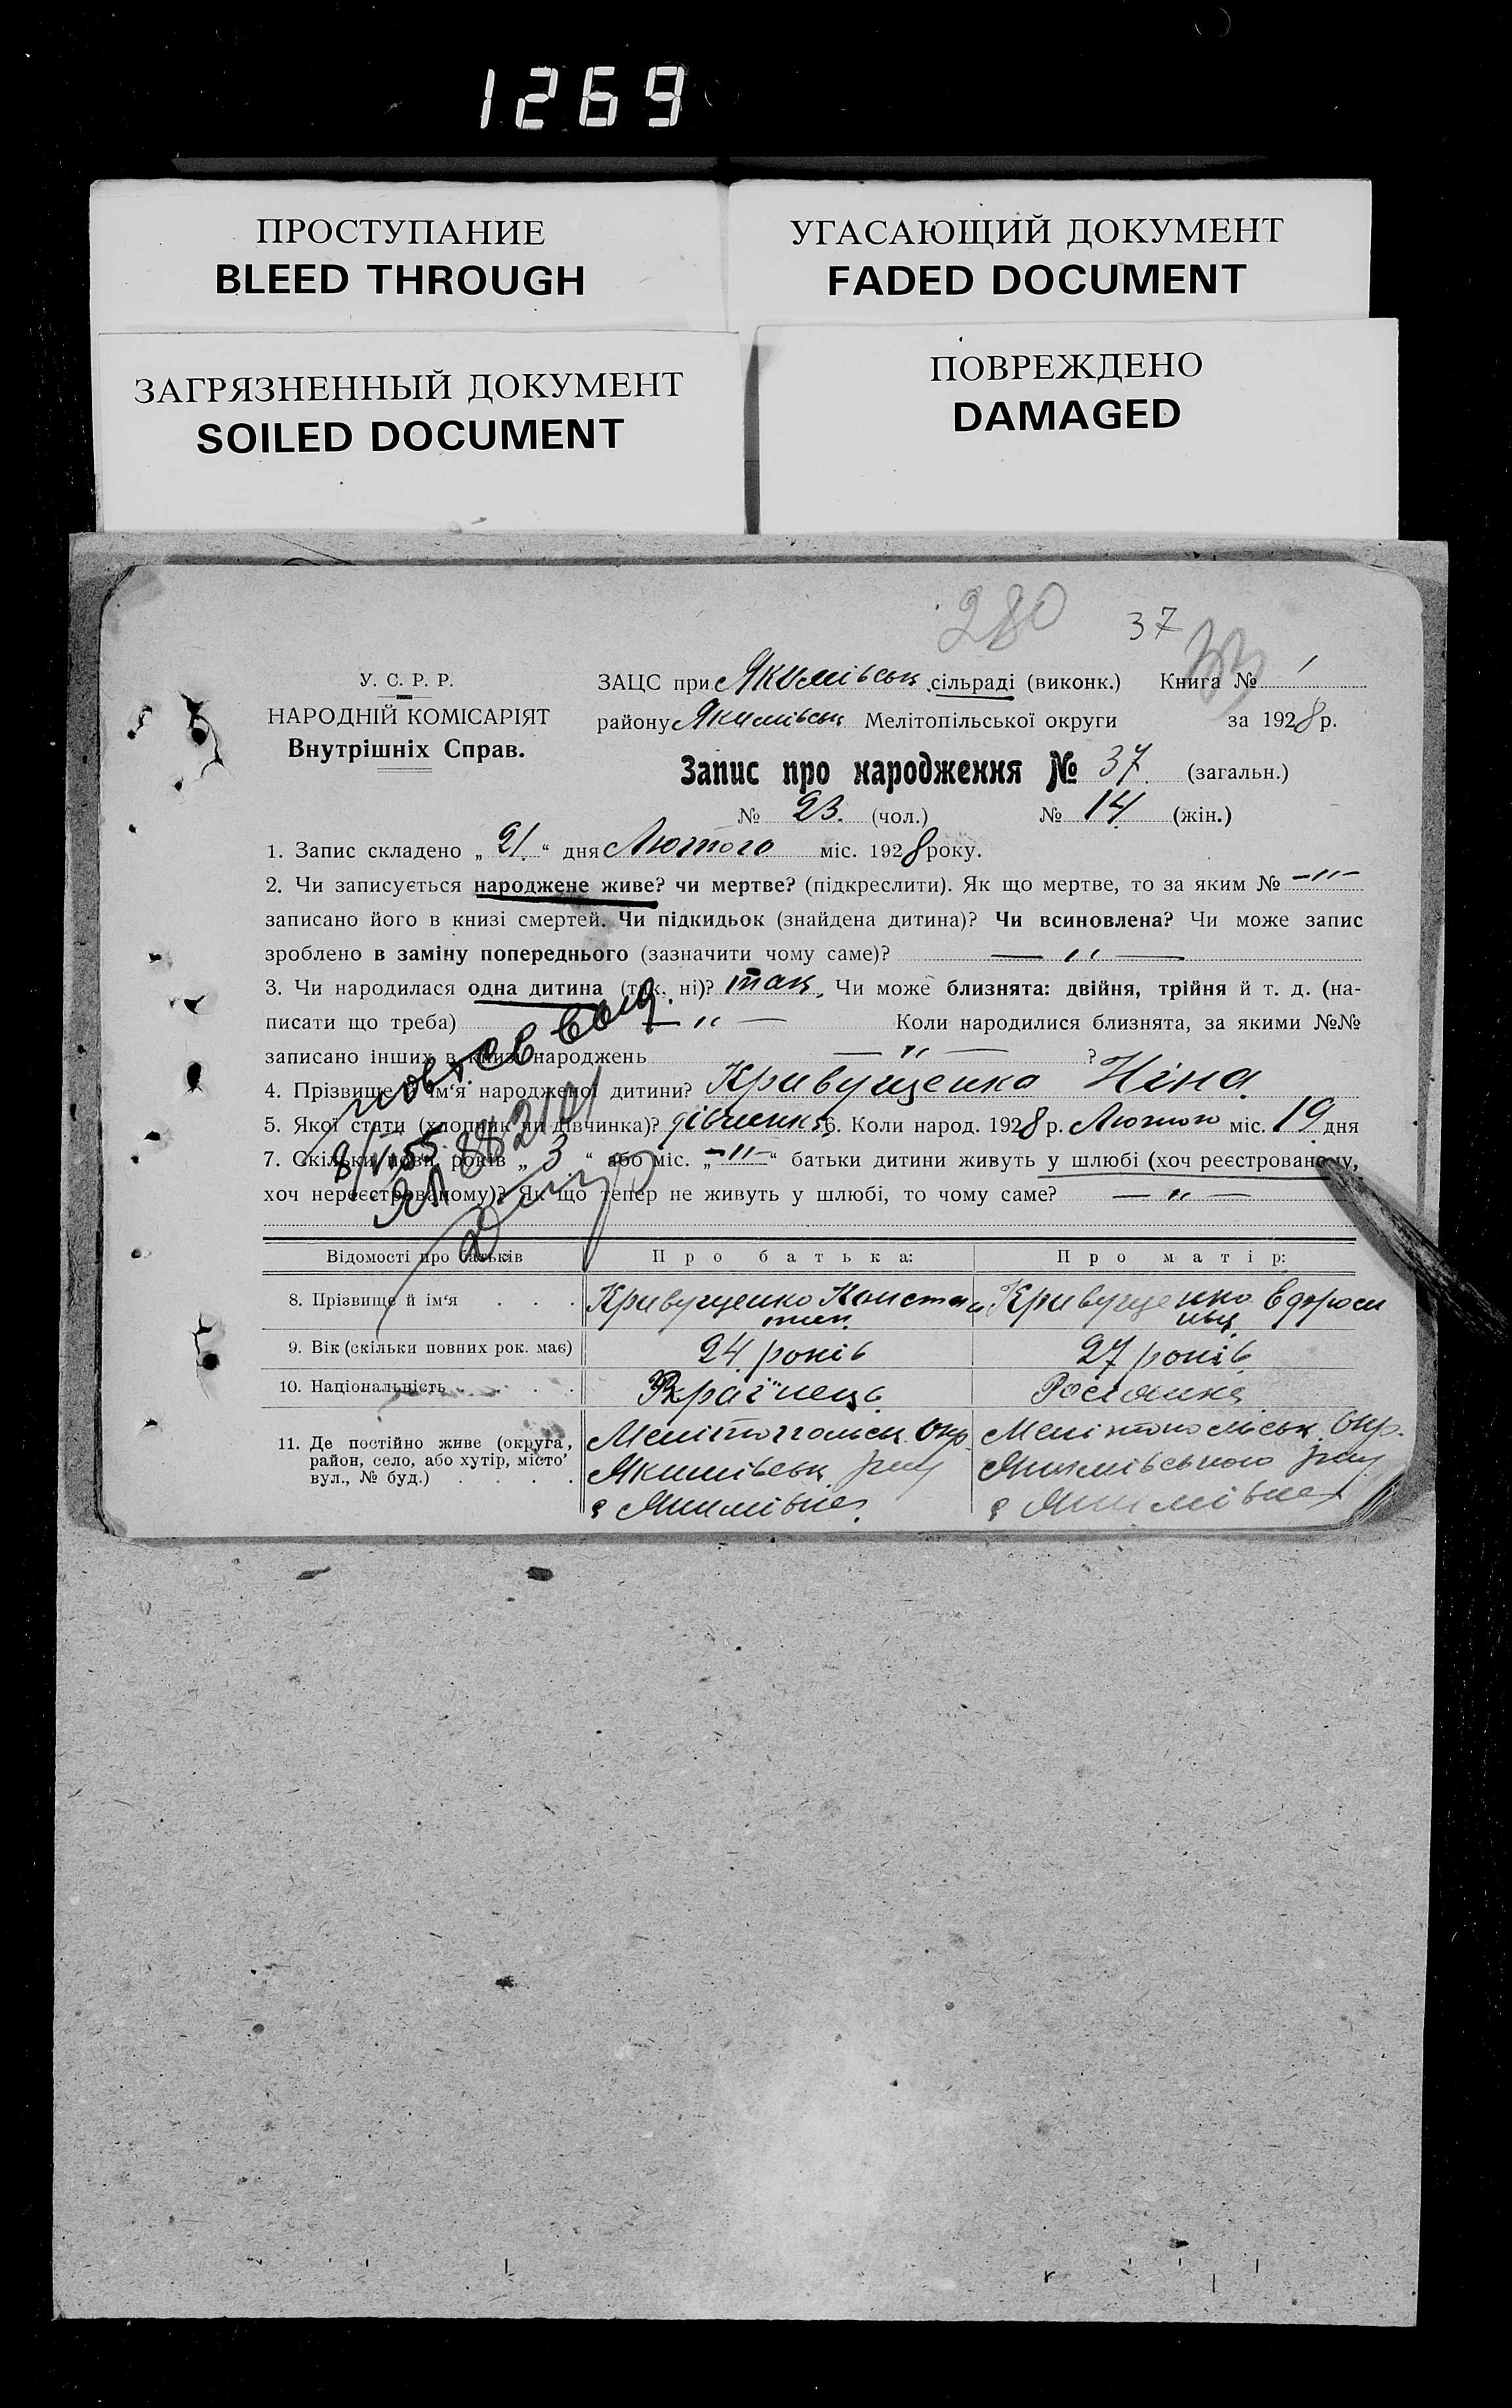 1269
ПРОСТУПАНИЕ
BLEED THROUGH
УГАСАЮЩИЙ ДОКУМЕНТ
FADED DOCUMENT
ЗАГРЯЗНЕННЫЙ ДОКУМЕНТ
SOILED DOCUMENT
ПОВРЕЖДЕНО
DAMAGED
280 37
У. С. Р. Р.
НАРОДНІЙ КОМІСАРІЯТ
Внутрішніх Справ.
ЗАЦС при Якимівськ сільраді (виконк.) Книга № 1
району Якимівськ Мелітопільської округи за 1928 р.
Запис про народження № 37 (загальн.)
№ 23. (чол.) № 14 (жін.)
1. Запис складено „ 21 “ дня Лютого міс. 1928 року.
2. Чи записується народжене живе? чи мертве? (підкреслити). Як що мертве, то за яким № -"-
записано його в книзі смертей. Чи підкидьок (знайдена дитина)? Чи всиновлена? Чи може запис
зроблено в заміну попереднього (зазначити чому саме)? — " —
3. Чи народилася одна дитина (так. ні)? так. Чи може близнята: двійня, трійня й т. д. (на-
писати що треба) — " — Коли народилися близнята, за якими №№
записано інших в книзі народжень — " — ?
4. Прізвище й ім'я народженої дитини? Кривущенко Ніна
5. Якої стати (хлопчик чи дівчинка)? дівчинка 6. Коли народ. 1928 р. Лютого міс. 19 дня
7. Скільки повн. років „ 3 “ або міс. „ -"- “ батьки дитини живуть у шлюбі (хоч реєстрованому,
хоч нереєстрованому)? Як що тепер не живуть у шлюбі, то чому саме? — " —
Відомості про батьків Про батька: Про матір:
8. Прізвище й ім'я . . . Кривущенко Констан Кривущенко Єдфроси
тин нья
9. Вік (скільки повних рок. має) 24 років 27 років
10. Національність . . . . Вкраїнець Росіянка
11. Де постійно живе (округа,
район, село, або хутір, місто
вул., № буд.) . . . .
Мелітопольськ Окр
Якимівськ р-ну
с Якимівка
Мелітопольськ Окр.
Якимівського р-ну
с Якимівка